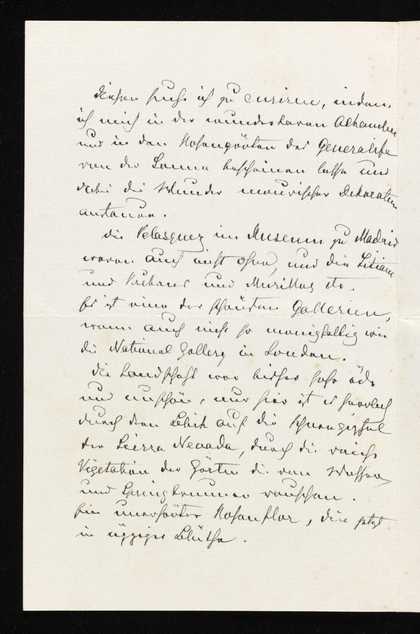 diesen suche ich zu curiren, indem
ich mich in der wunderbaren Alhambra
und in den Rosengärten des Generalife
von der Sonne bescheinen lasse und
dabei die Wunder maurischer Dekoration
anstaune.
Die Velasquez im Museum zu Madrid
waren auch nicht ohne, und die Tizians
und Rubens und Murillos etc.
Es ist eine der schönsten Gallerien,
wenn auch nicht so manigfaltig wie
die National Gallery in London.
Die Landschaft war bisher sehr öde
und unschön, nur hier ist es herrlich
durch den Blick auf die Schneegipfel
der Sierra Nevada, durch die reiche
Vegetation der Gärten die von Wasser
und Springbrunnen rauschen.
Ein unerhörter Rosenflor, die jetzt
in üppiger Blüthe.